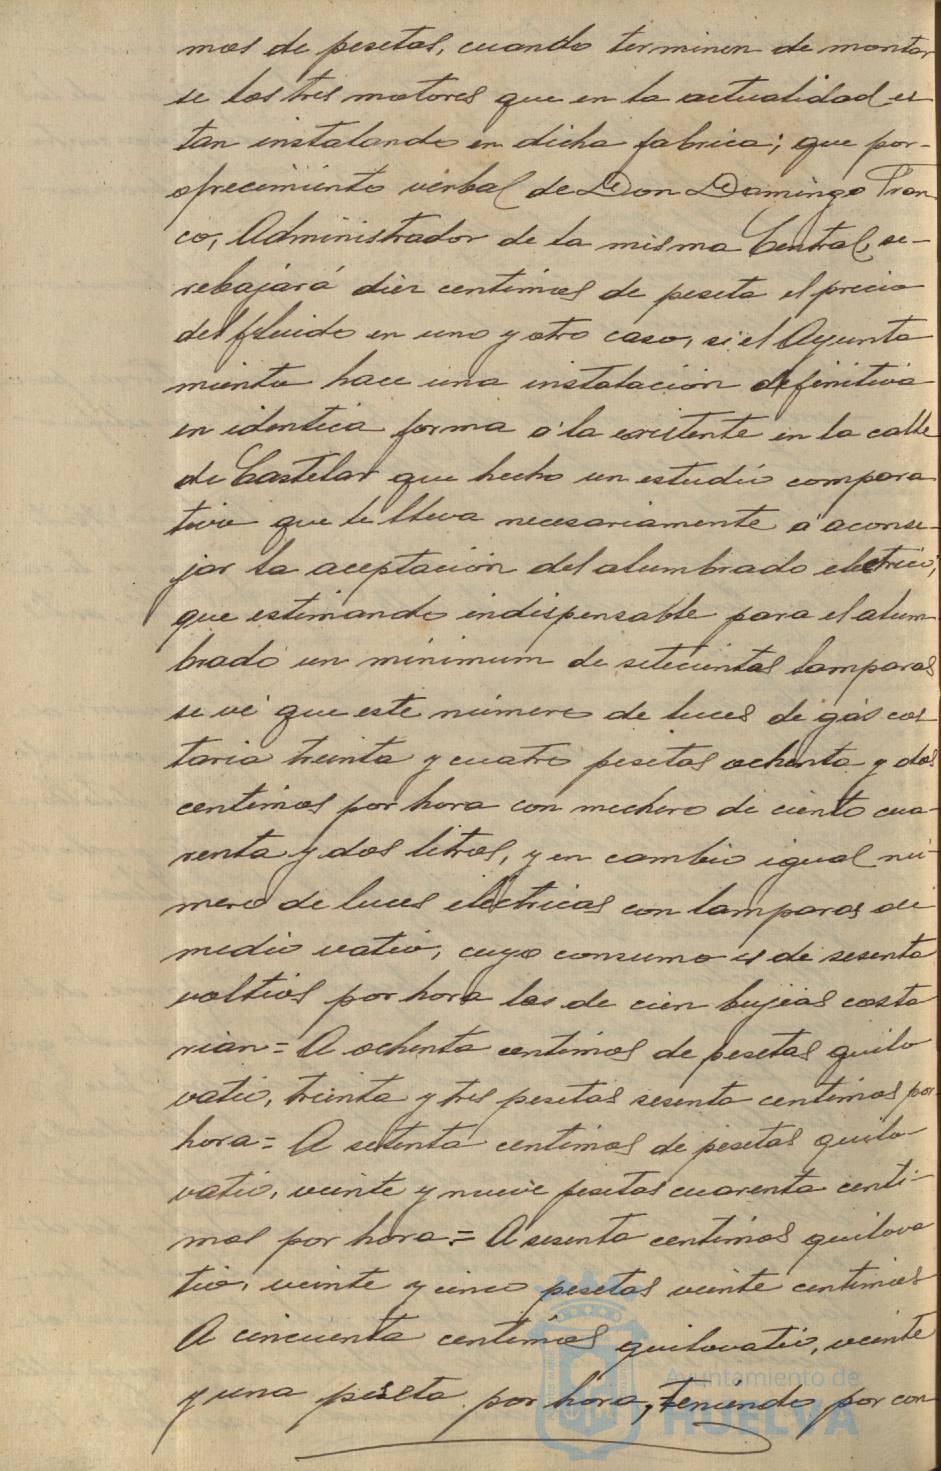 mos de pesetas, cuando terminen de montar
se los tres motores que en la actualidad es
tan instalando en dicha fabrica; que por-
ofrecimiento verbal de Don Domingo Fran
co, Administrador de la misma Central, se-
rebajará diez centimos de peseta el precio
del fluido en uno y otro caso, si el Ayunta
miento hace una instalación definitiva
en identica forma á la existente en la calle
de Castelar que hecho un estudio compara
tivo que le lleva necesariamente á aconse-
jar la aceptación del alumbrado electrico,
que estimando indispensable para el alum
brado un minimum de setecientas lamparas
se vé que este número de luces de gás cos
taria treinta y cuatro pesetas ochenta y dos
centimos por hora con mechero de ciento cua-
renta y dos litros, y en cambio igual nú-
mero de luces eléctricas con lamparas de
medio vatio, cuyo consumo es de sesenta
voltios por hora las de cien bujias costa
rian = A ochenta centimos de pesetas quilo
vatio, treinta y tres pesetas sesenta centimos por
hora = A setenta centimos de pesetas quilo-
vatio, veinte y nueve pesetas cuarenta centi-
mos por hora = A sesenta centimos quilova
tio, veinte y cinco pesetas veinte centimos
A cincuenta centimos quilovatio, veinte
y una peseta por hora, teniendo por con
Ayuntamiento de
HUELVA